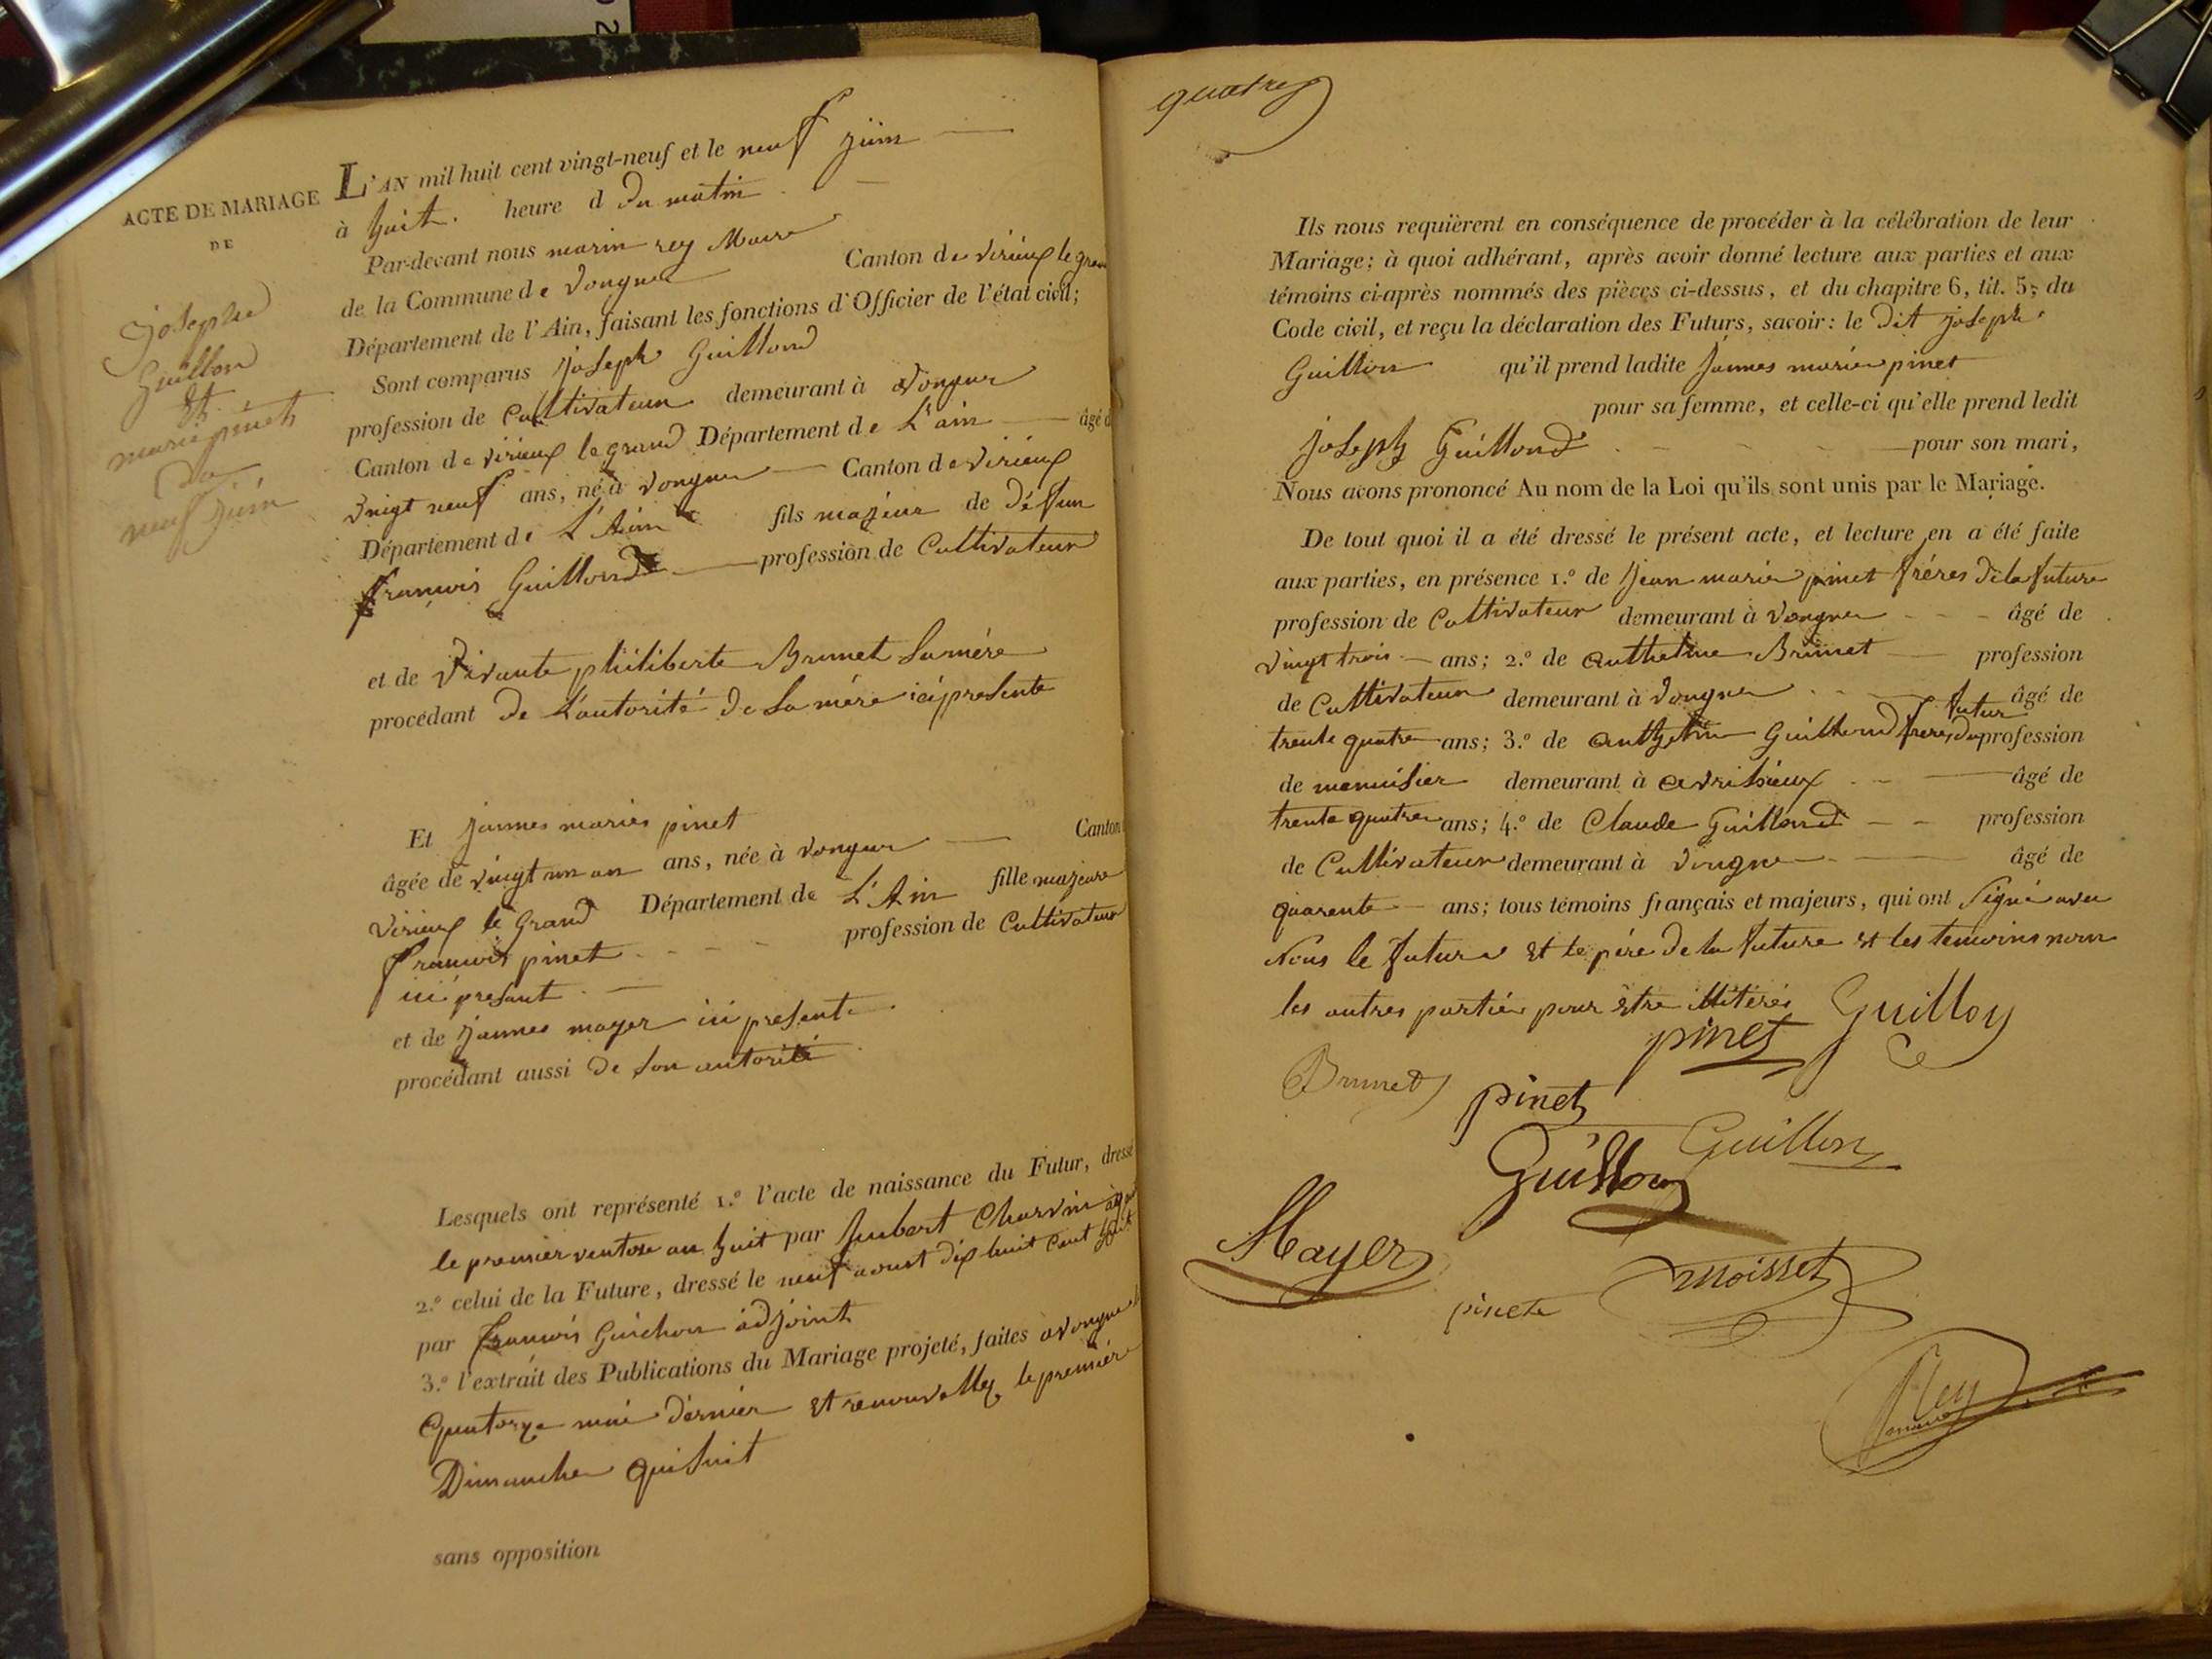 ACTE DE MARIAGE
DE
josephe
Guillon
Et
marie pinet
Du
neuf juin
L'AN mil huit cent vingt-neuf et le neuf juin
à huit. heure d du matin
Par-devant nous marin rey Maire
de la Commune de Vongne Canton de virieux le gran
Département de l'Ain, faisant les fonctions d'Officier de l'état civil;
Sont comparus joseph Guillond
profession de Cultivateur demeurant à Vongne
Canton de virieux le grand Département de L'ain âgé d
vingt neuf ans, né à vongne Canton de virieux
Département de L'Ain fils majeur de défun
francois Guillond profession de Cultivateur
et de vivante philiberte Brunet sa mére
procédant de L'autorité de sa mére ici presente
Et jannes maries pinet
âgée de vingt un an ans, née à vongne Canton
virieux le Grand Département de L'Ain fille majeure
francois pinet profession de Cultivateur
ici presant
et de jannes mayer ici presente
procédant aussi de son autorité
Lesquels ont représenté 1.º l'acte de naissance du Futur, dressé
le premier ventose an huit par humbert Charvin
2.º celui de la Future, dressé le neuf aoust dix huit cent huit
par francois Guichon adjoint
3.º l'extrait des Publications du Mariage projeté, faites à vongne
Quatorze mai dernier et renouvelley le premier
Dimanche qui suit
sans opposition
quatre
Ils nous requièrent en conséquence de procéder à la célébration de leur
Mariage; à quoi adhérant, après avoir donné lecture aux parties et aux
témoins ci-après nommés des pièces ci-dessus, et du chapitre 6, tit. 5, du
Code civil, et reçu la déclaration des Futurs, savoir: le dit joseph
Guillon qu'il prend ladite jannes marie pinet
pour sa femme, et celle-ci qu'elle prend ledit
joseph Guillond pour son mari,
Nous avons prononcé Au nom de la Loi qu'ils sont unis par le Mariage.
De tout quoi il a été dressé le présent acte, et lecture en a été faite
aux parties, en présence 1.º de jean marie pinet fréres de la future
profession de Cultivateur demeurant à vongne âgé de
vingt trois ans; 2.º de anthelme Brunet profession
de Cultivateur demeurant à vongne âgé de
futur
trente quatre ans; 3.º de anthelme Guillond frere du profession
de menuisier demeurant à avrissieux âgé de
trente quatre ans; 4.º de Claude Guillond profession
de Cultivateur demeurant à vongne âgé de
quarente ans; tous témoins français et majeurs, qui ont signé avec
Nous le future et le pére de la future et les temoins non
les autres partie pour être illitéré
pinet Guilloy
Brunet pinet
Guillon
Guillon
Mayer
pinet moisset
Rey
maire